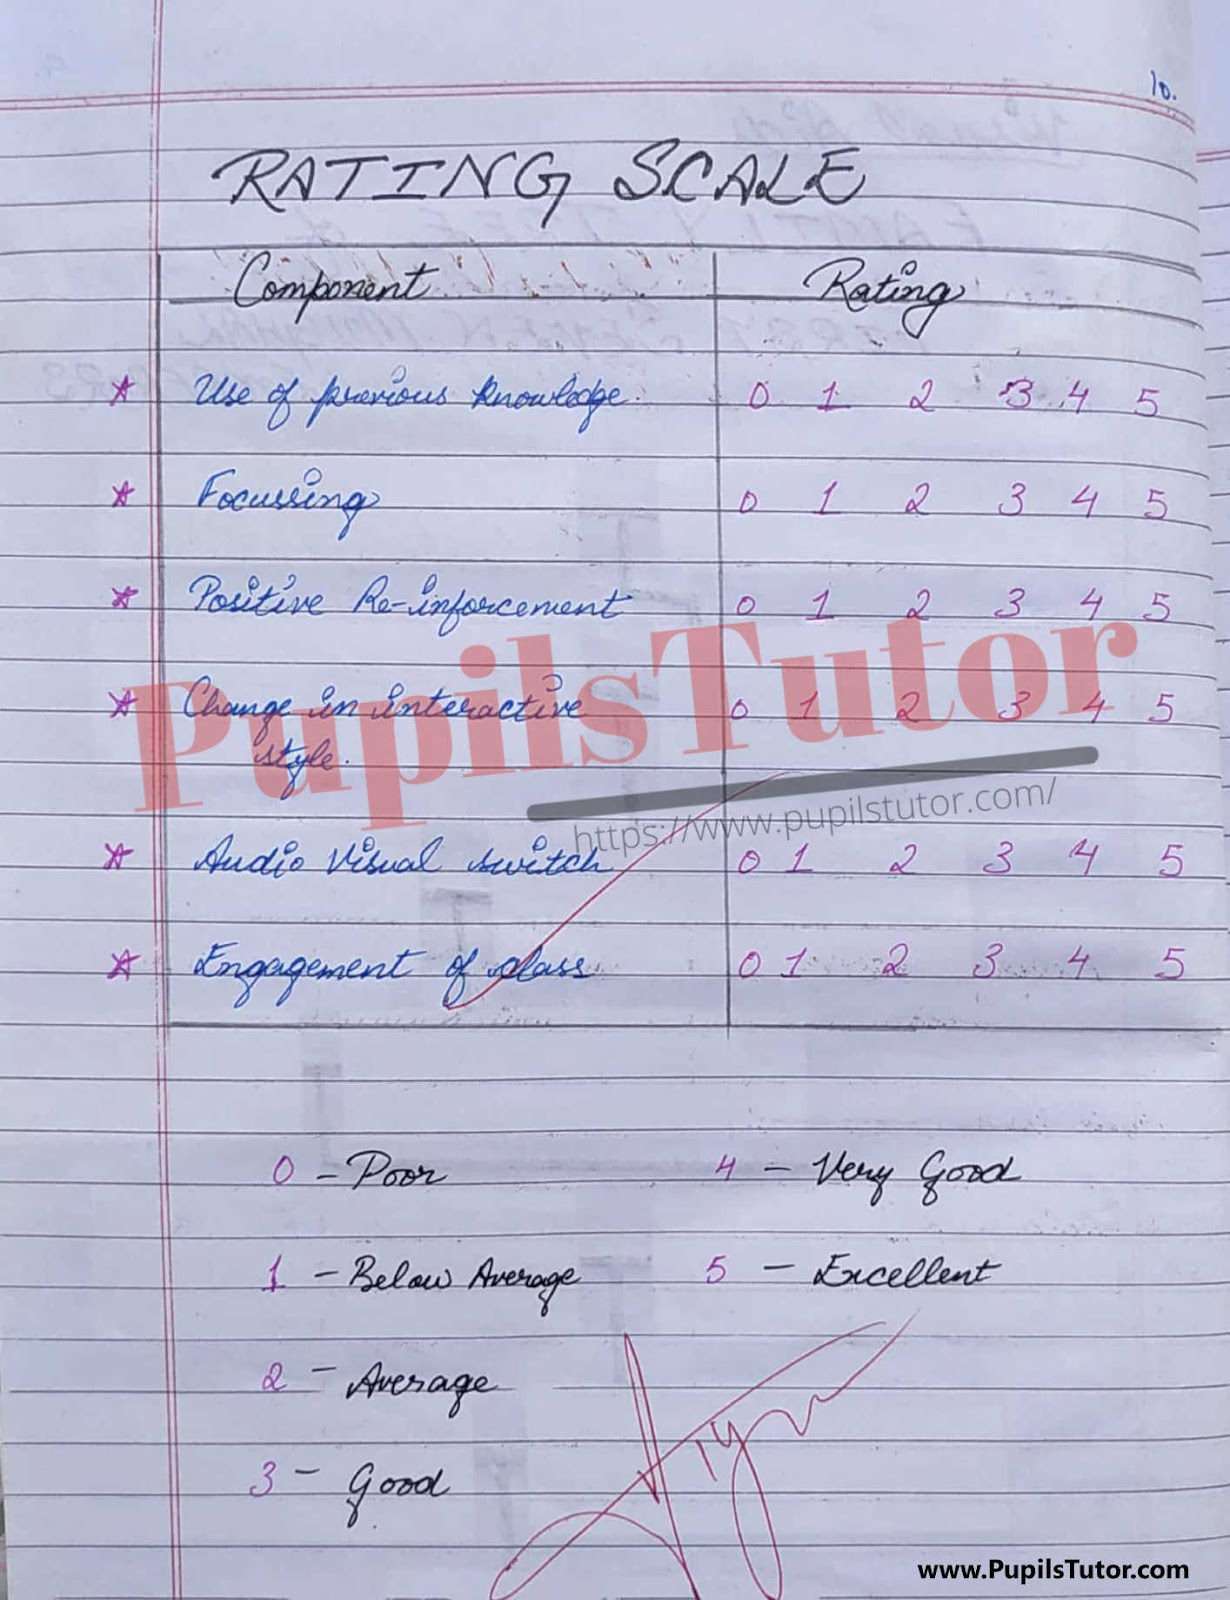 10.
RATING SCALE
Component Rating
Use of previous knowledge. 0 1 2 3 4 5
Focussing 0 1 2 3 4 5
Positive Re-inforcement 0 1 2 3 4 5
PupilsTutor
Change in interactive 0 1 2 3 4 5
style.
https://www.pupilstutor.com/
Audio Visual switch 0 1 2 3 4 5
Engagement of class 0 1 2 3 4 5
0 - Poor 4 - Very Good
1 - Below Average 5 - Excellent
2 - Average
3 - Good
www.PupilsTutor.com